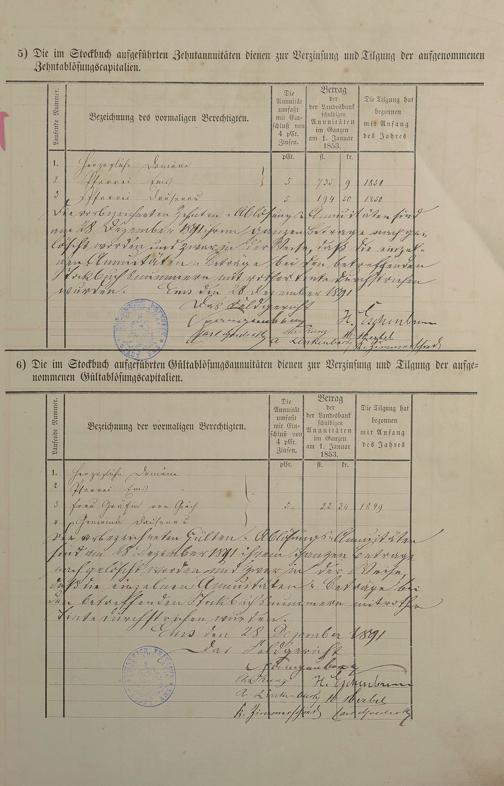 5) Die im Stockbuch aufgeführten Zehntannuitäten dienen zur Verzinsung und Tilgung der aufgenommenen
Zehntablösungscapitalien.
Laufende Nummer.
Bezeichnung des vormaligen Berechtigten.
Die
Annuität
umfaßt
mit Ein-
schluß von
4 pCt.
Zinsen.
Betrag
der
der Landesbank
schuldigen
Annuitäten
im Ganzen
am 1. Januar
1853.
Die Tilgung hat
begonnen
mit Anfang
des Jahres
pCt.
fl.
kr.
1. Herzogliche Domäne
2. Pfarrei Ems 5 735 9 1850
3 Pfarrei Dausenau 5 194 50 1850
Die vorbezeichneten Zehnten-Ablösungs-Annuitäten sind
am 28 Dezember 1891 ihrem ganzen Betrage nach ge-
löscht worden und zwar in der Weise, daß die einzel-
nen Annuitäten-Beträge bei den betreffenden
Stockbuchsnummern mit rother Tinte durchstrichen
wurden. Ems den 28 Dezember 1891
Das Feldgericht
H. Eschenbrenner
6) Die im Stockbuch aufgeführten Gültablösungsannuitäten dienen zur Verzinsung und Tilgung der aufge-
nommenen Gültablösungscapitalien.
Laufende Nummer.
Bezeichnung der vormaligen Berechtigten.
Die
Annuität
umfaßt
mit Ein-
schluß von
4 pCt.
Zinsen.
Betrag
der
der Landesbank
schuldigen
Annuitäten
im Ganzen
am 1. Januar
1853.
Die Tilgung hat
begonnen
mit Anfang
des Jahres
pCt.
fl.
kr.
1. Herzogliche Domäne
2. Pfarrei Ems
3 Frau Gräfin von 5 22 24 1849
4 Gemeinde Dausenau
Die vorbezeichneten Gülten-Ablösungs-Annuitäten
sind am 28 Dezember 1891 ihrem ganzen Betrage
nach gelöscht worden und zwar in der Weise,
daß die einzelnen Annuitäten-Beträge bei
den betreffenden Stockbuchsnummern mit rother
Tinte durchstrichen wurden.
Ems den 28 Dezember 1891
Das Feldgericht
H. Eschenbrenner